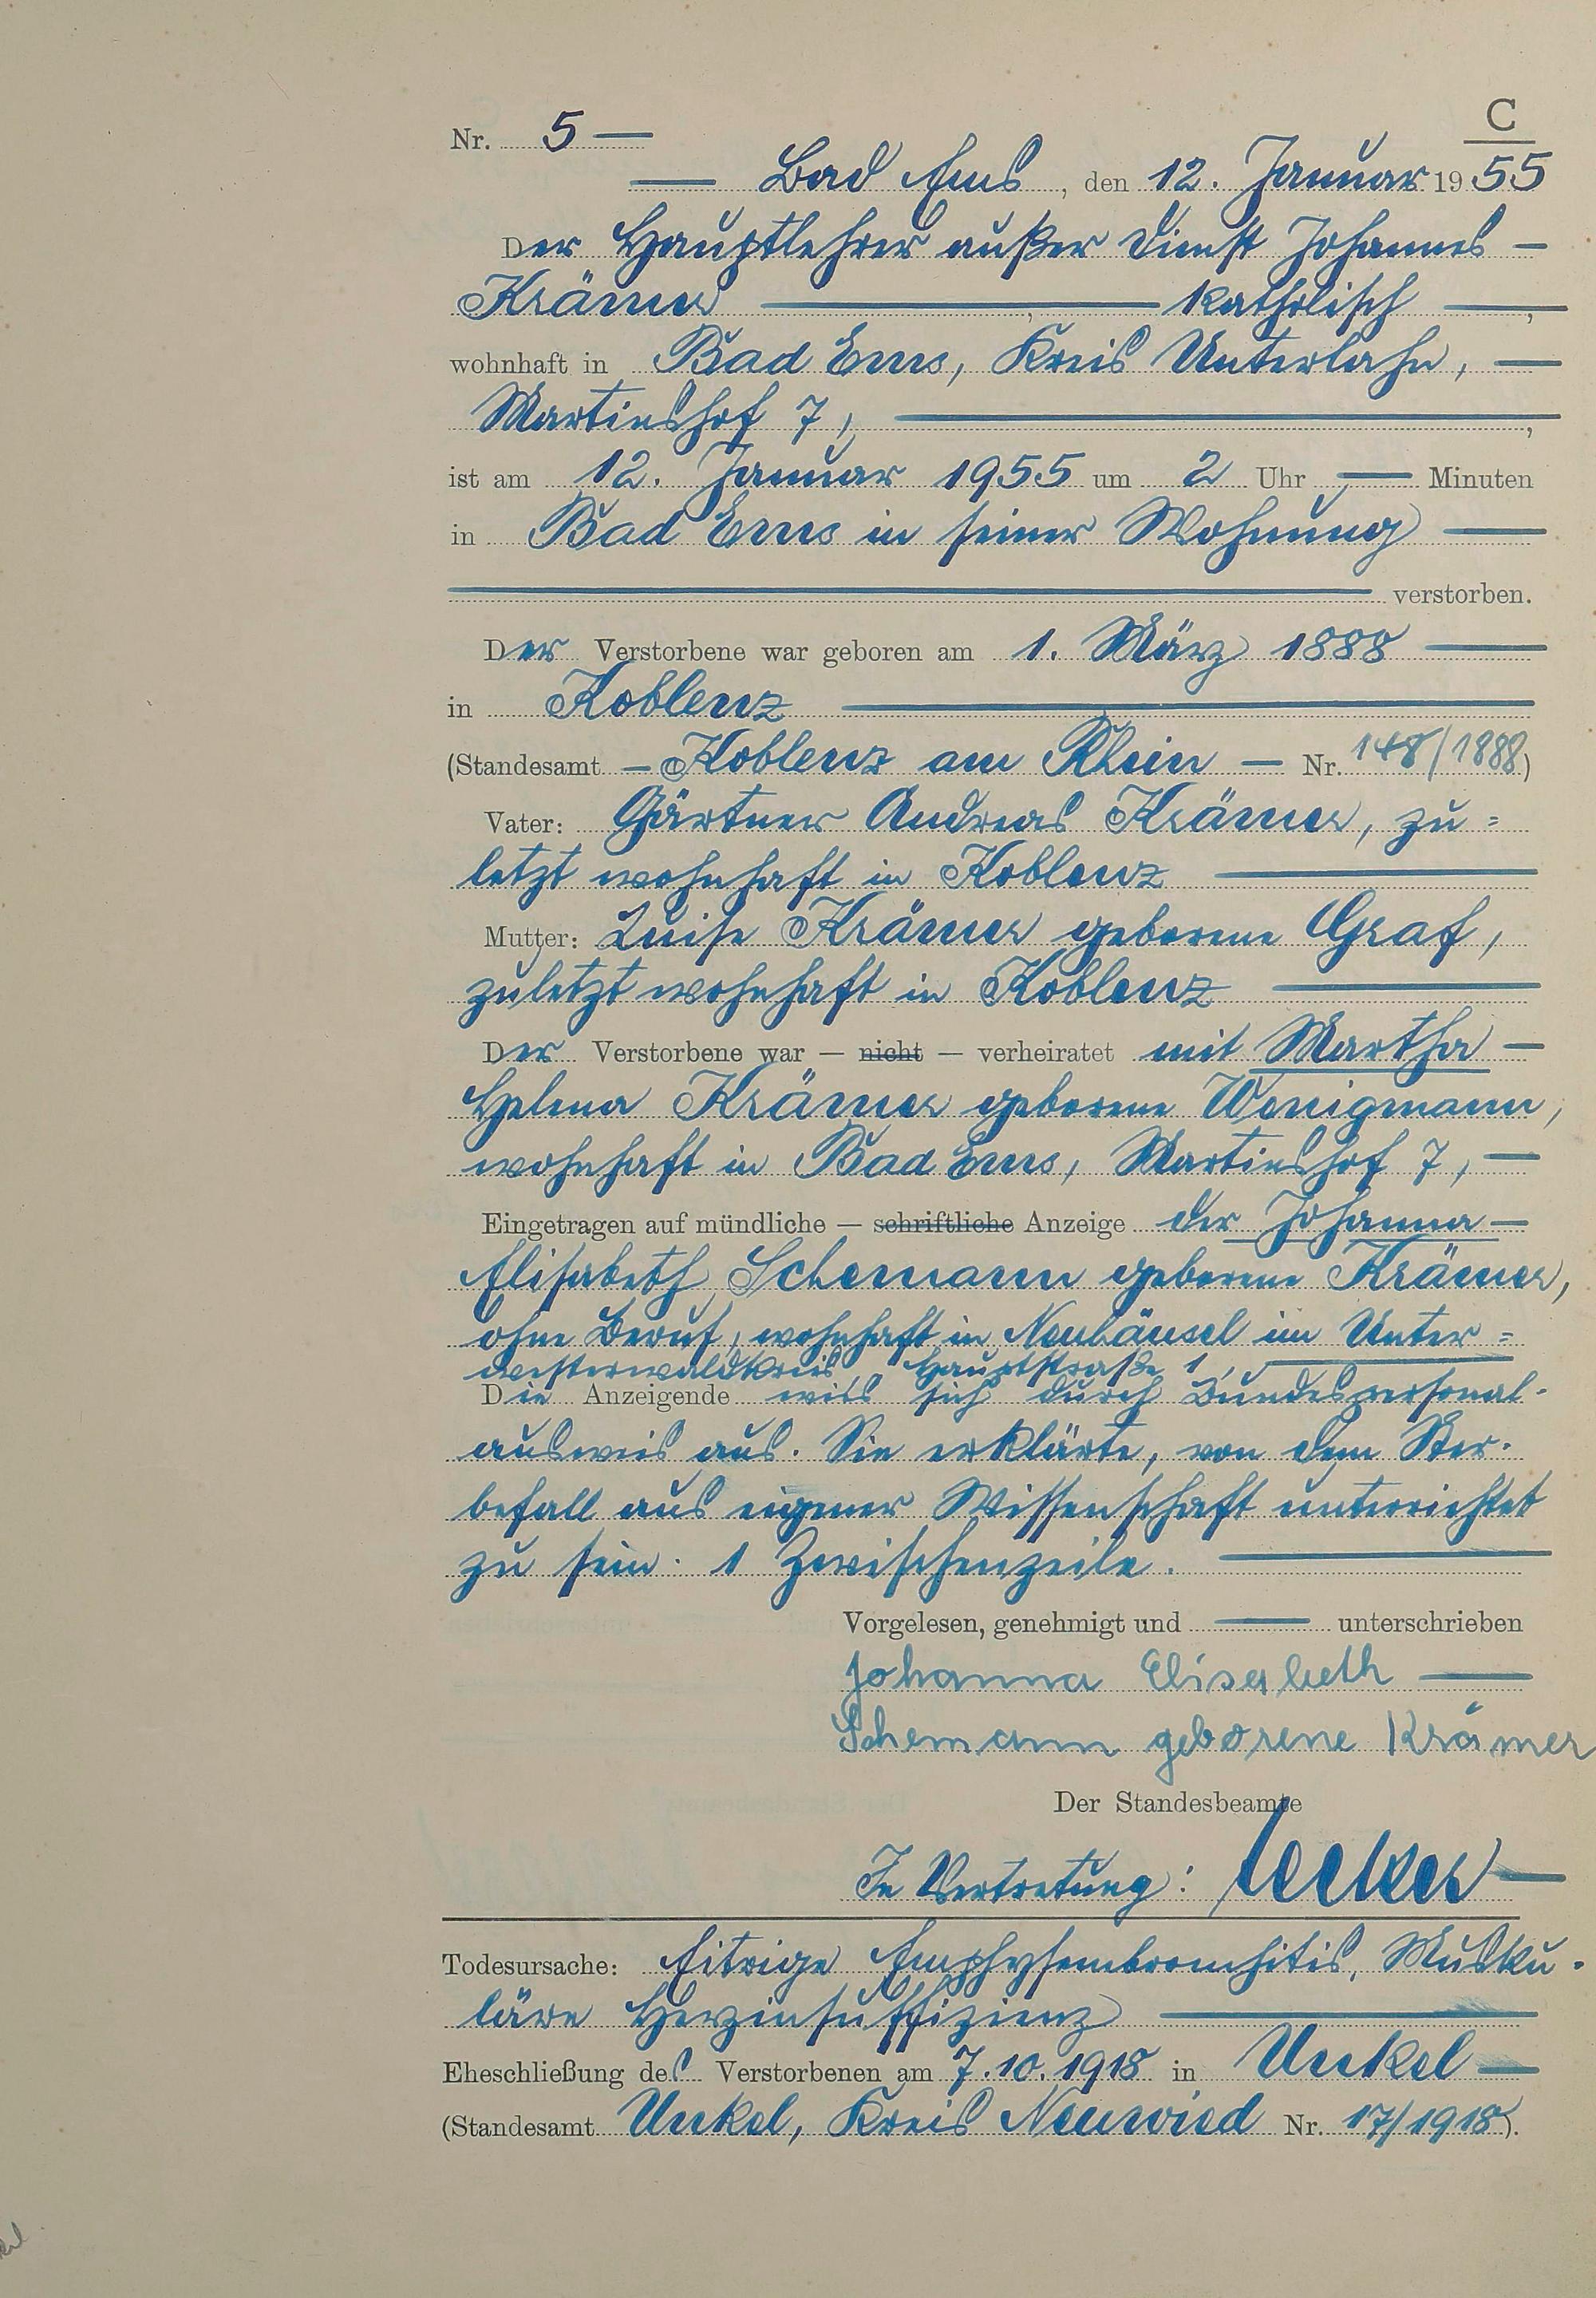 C
Nr. 5 —
— Bad Ems, den 12. Januar 1955
Der Hauptlehrer außer Dienst Johannes —
Krämer —, — katholisch —,
wohnhaft in Bad Ems, Kreis Unterlahn, —
Martinshof 7, —,
ist am 12. Januar 1955 um 2 Uhr — Minuten
in Bad Ems in seiner Wohnung —
— verstorben.
Der Verstorbene war geboren am 1. März 1888 —
in Koblenz —
(Standesamt — Koblenz am Rhein — Nr. 148/1888)
Vater: Gärtner Andreas Krämer, zu=
letzt wohnhaft in Koblenz —
Mutter: Luise Krämer geborene Graf,
zuletzt wohnhaft in Koblenz —
Der Verstorbene war — nicht — verheiratet mit Martha —
Helena Krämer geborene Wenigmann,
wohnhaft in Bad Ems, Martinshof 7, —
Eingetragen auf mündliche — schriftliche Anzeige der Johanna —
Elisabeth Schemann geborene Krämer,
ohne Beruf, wohnhaft in Neuhäusel im Unter=
westerwaldkreis, Hauptstraße 1, —
Die Anzeigende wies sich durch Bundespersonal-
ausweis aus. Sie erklärte, von dem Ster-
befall aus eigener Wissenschaft unterrichtet
zu sein. 1 Zwischenzeile. —
Vorgelesen, genehmigt und — unterschrieben
Johanna Elisabeth —
Schemann geborene Krämer
Der Standesbeamte
In Vertretung: —
Todesursache: Eitrige Emphysembronchitis, Musku-
läre Herzinsuffizienz —
Eheschließung des Verstorbenen am 7.10.1918 in Unkel —
(Standesamt Unkel, Kreis Neuwied Nr. 17/1918).